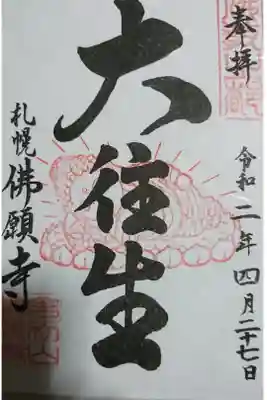 奉拝
令和二年四月二十七日
大往生
札幌佛願寺